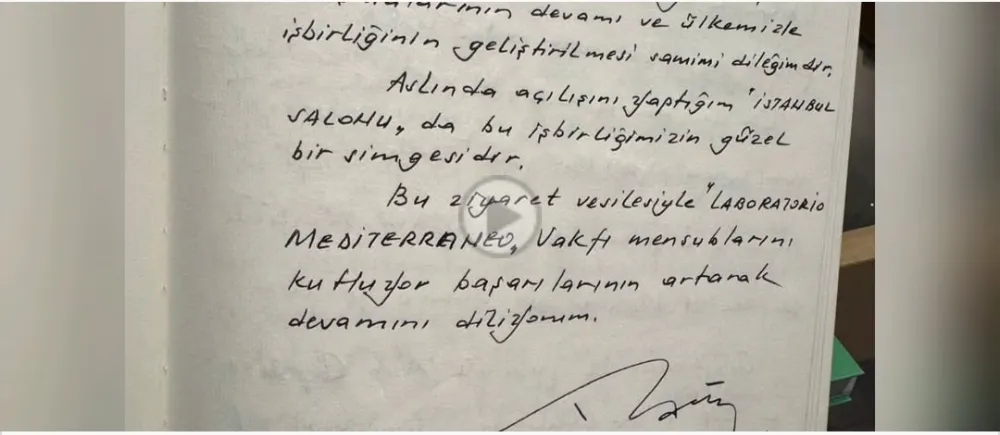 devamı ve ülkemizle
işbirliğinin geliştirilmesi samimi dileğimdir.
Aslında açılışını yaptığım "İSTANBUL
SALONU„ da bu işbirliğimizin güzel
bir simgesidir.
Bu ziyaret vesilesiyle "LABORATORİO
MEDİTERRANEO„ Vakfı mensublarını
kutluyor başarılarının artarak
devamını diliyorum.